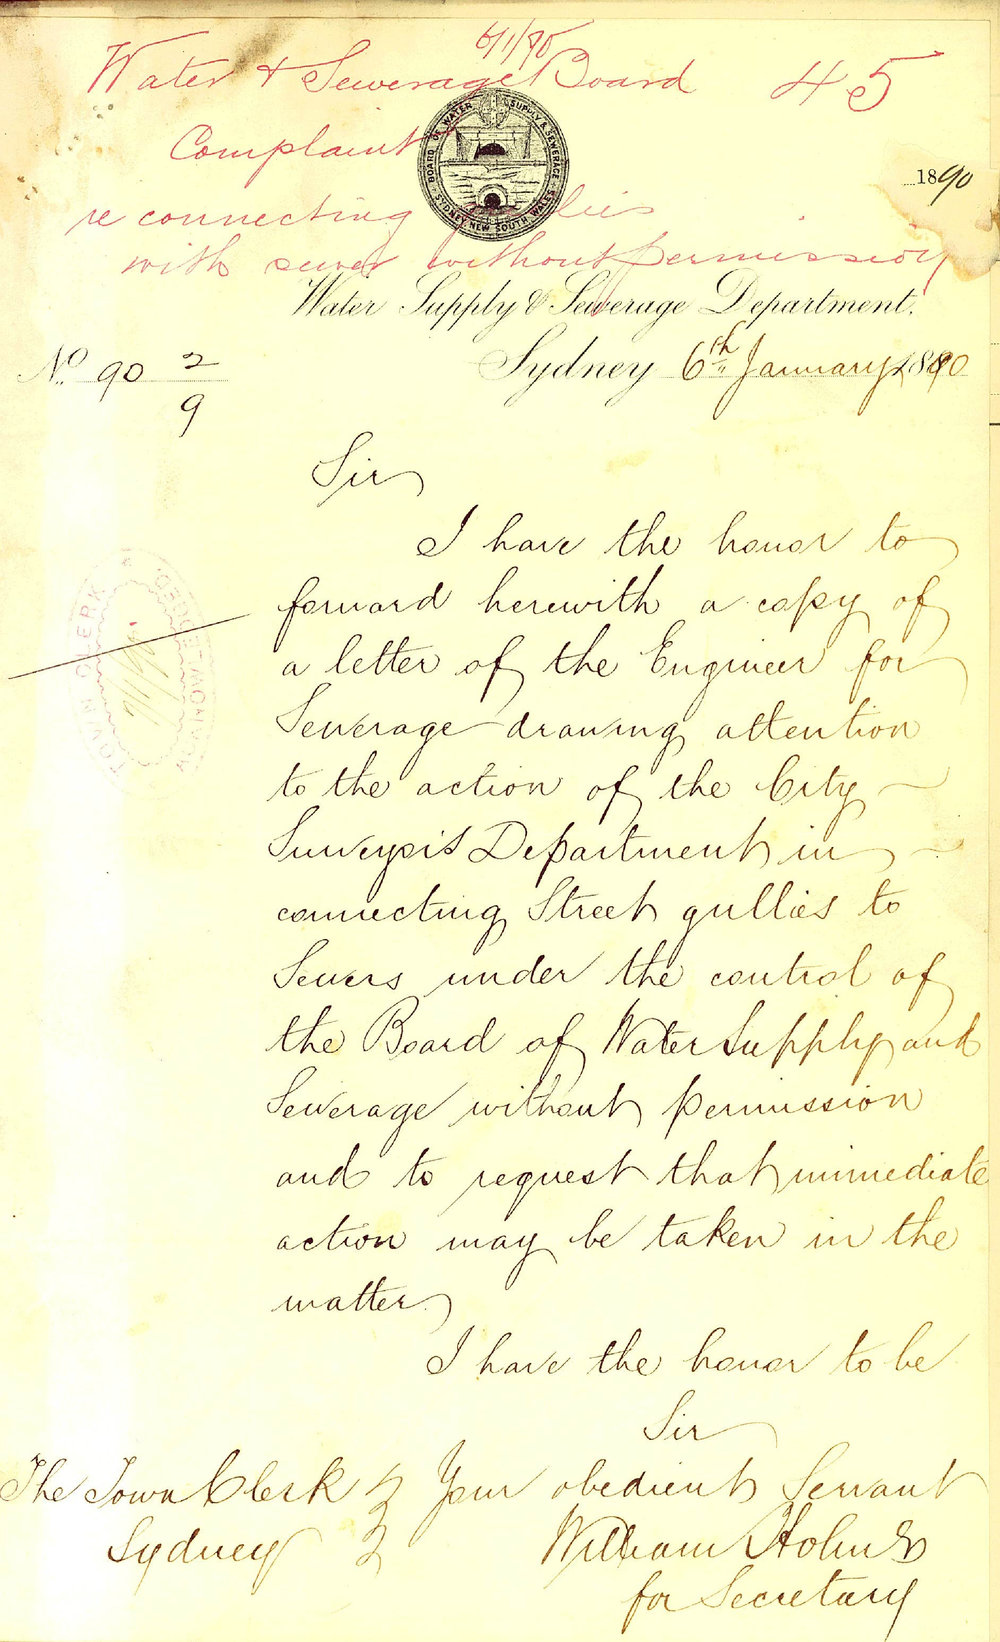 6/1/90
Water & Sewerage Board 45
Complaint
re connecting gullies
with sewer without permission
BOARD OF WATER SUPPLY & SEWERAGE
SYDNEY, NEW SOUTH WALES
1890
Water Supply & Sewerage Department.
No. 90 2/9
Sydney 6th January 1890
Sir
I have the honor to
forward herewith a copy of
a letter of the Engineer for
Sewerage drawing attention
to the action of the City
Surveyor's Department in
connecting Street gullies to
Sewers under the control of
the Board of Water Supply and
Sewerage without permission
and to request that immediate
action may be taken in the
matter.
I have the honor to be
Sir
Your obedient Servant
William Holmes
for Secretary
The Town Clerk
Sydney
TOWN CLERK